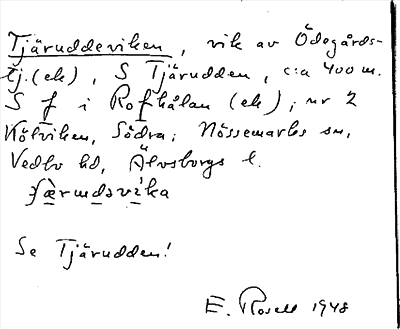 Tjäruddeviken, vik av Ödegårds-
tj. (ek), S Tjärudden, c:a 400 m.
S f i Rofhålan (ek); nr 2
Kölviken, Södra; Nössemarks sn,
Vedbo hd, Älvsborgs l.
ɟærudsvika
Se Tjärudden!
E. Rosell 1948